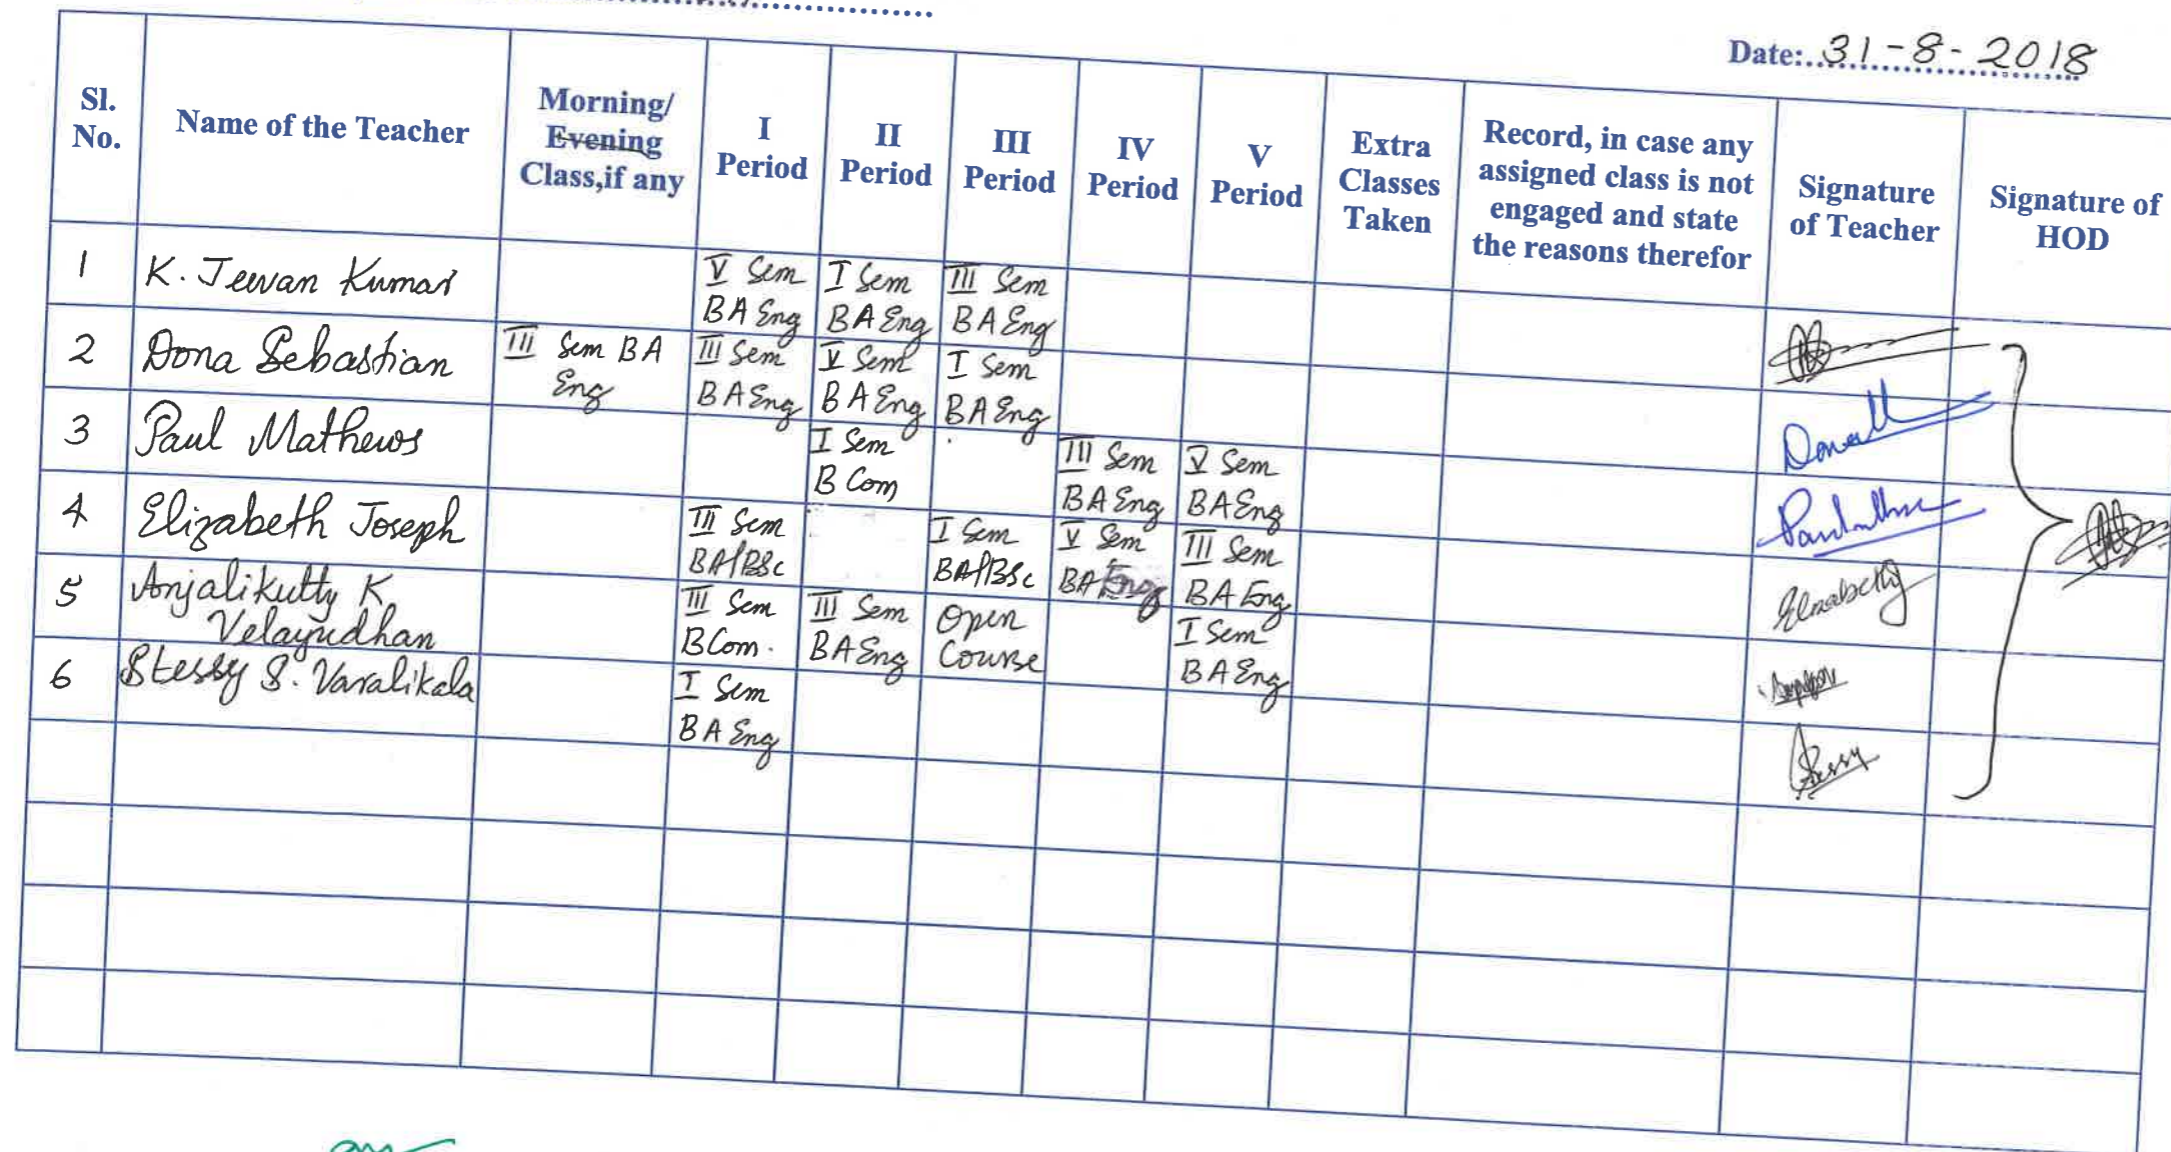 Date: 31-8-2018
Sl. No. Name of the Teacher Morning/ Evening Class,if any I Period II Period III Period IV Period V Period Extra Classes Taken Record, in case any assigned class is not engaged and state the reasons therefor Signature of Teacher Signature of HOD
1 K. Jeevan Kumar V Sem BA Eng I Sem BA Eng III Sem BA Eng
2 Dona Sebastian III Sem BA Eng III Sem BA Eng V Sem BA Eng I Sem BA Eng
3 Paul Mathews I Sem B Com III Sem BA Eng V Sem BA Eng
4 Elizabeth Joseph III Sem BA/BSc I Sem BA/BSc V Sem BA Eng III Sem BA Eng Elizabeth
5 Anjalikutty K Velayudhan III Sem BCom. III Sem BA Eng Open Course I Sem BA Eng
6 Stessy S. Varalikala I Sem BA Eng Stessy